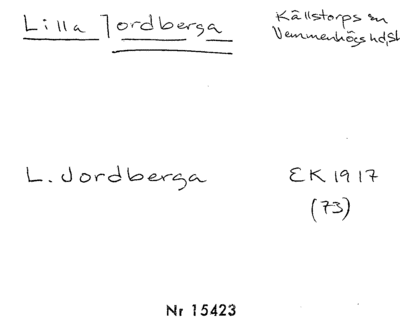 Lilla Jordberga
Källstorps sn
Vemmenhögs hd, Sk
L. Jordberga
EK 1917
(73)
Nr 15423